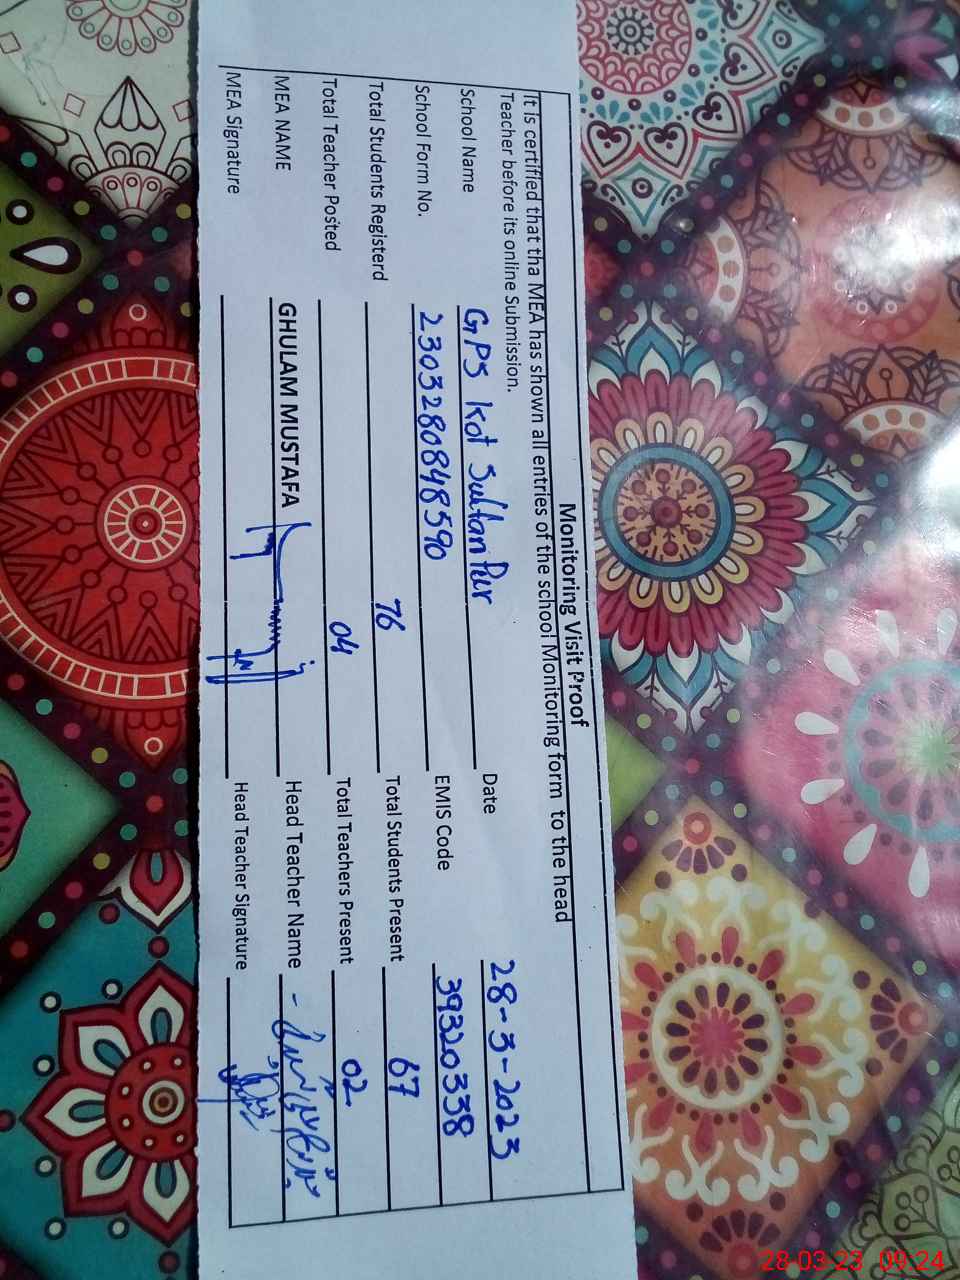 Monitoring Visit Proof
It is certified that tha MEA has shown all entries of the school Monitoring form to the head
Teacher before its online Submission.
School Name GPS Kot Sultan Pur Date 28-3-2023
School Form No. 2303280848590 EMIS Code 39320338
Total Students Registerd 76 Total Students Present 67
Total Teacher Posted 04 Total Teachers Present 02
MEA NAME GHULAM MUSTAFA Head Teacher Name
MEA Signature Head Teacher Signature
28-03-23 09:24